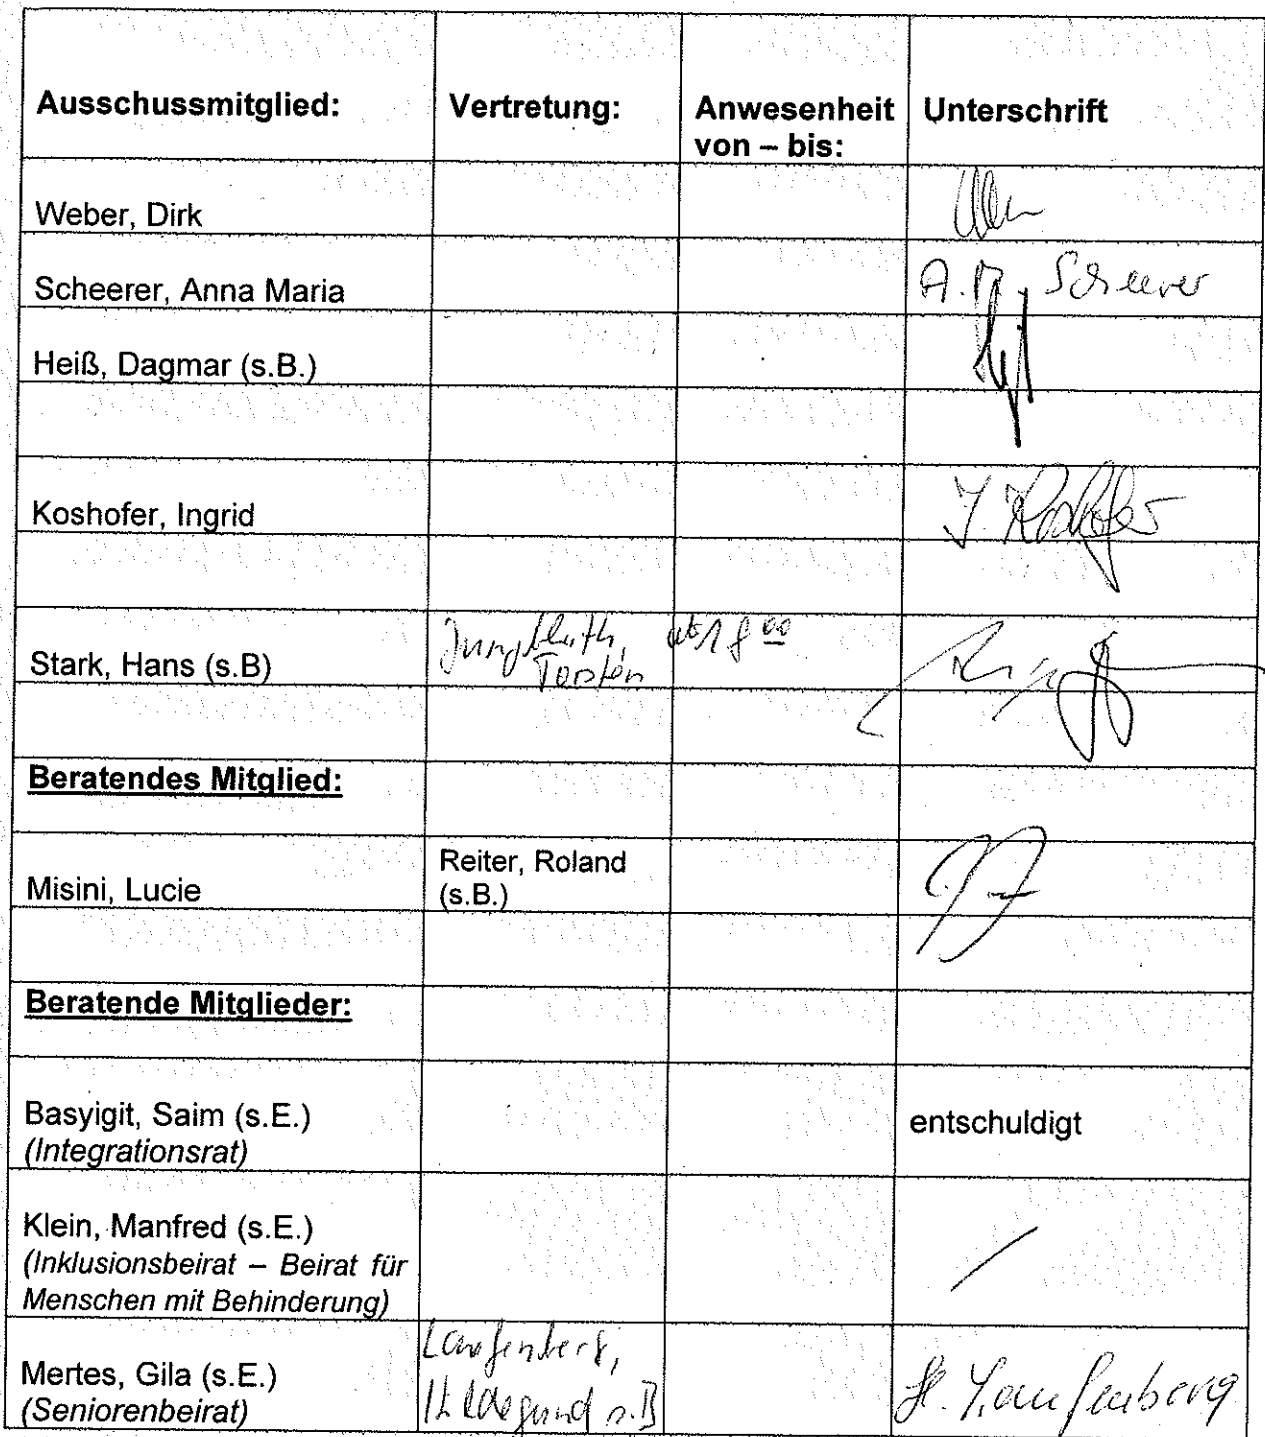 Ausschussmitglied: Vertretung: Anwesenheit von – bis: Unterschrift
Weber, Dirk
Scheerer, Anna Maria A. M. Scheerer
Heiß, Dagmar (s.B.)
Koshofer, Ingrid I. Koshofer
Stark, Hans (s.B) Jungbluth, Torsten ab 18 00
Beratendes Mitglied:
Misini, Lucie Reiter, Roland (s.B.)
Beratende Mitglieder:
Basyigit, Saim (s.E.) entschuldigt
(Integrationsrat)
Klein, Manfred (s.E.)
(Inklusionsbeirat – Beirat für
Menschen mit Behinderung)
Mertes, Gila (s.E.) Laufenberg,
(Seniorenbeirat) Hildegund s.B H. Laufenberg